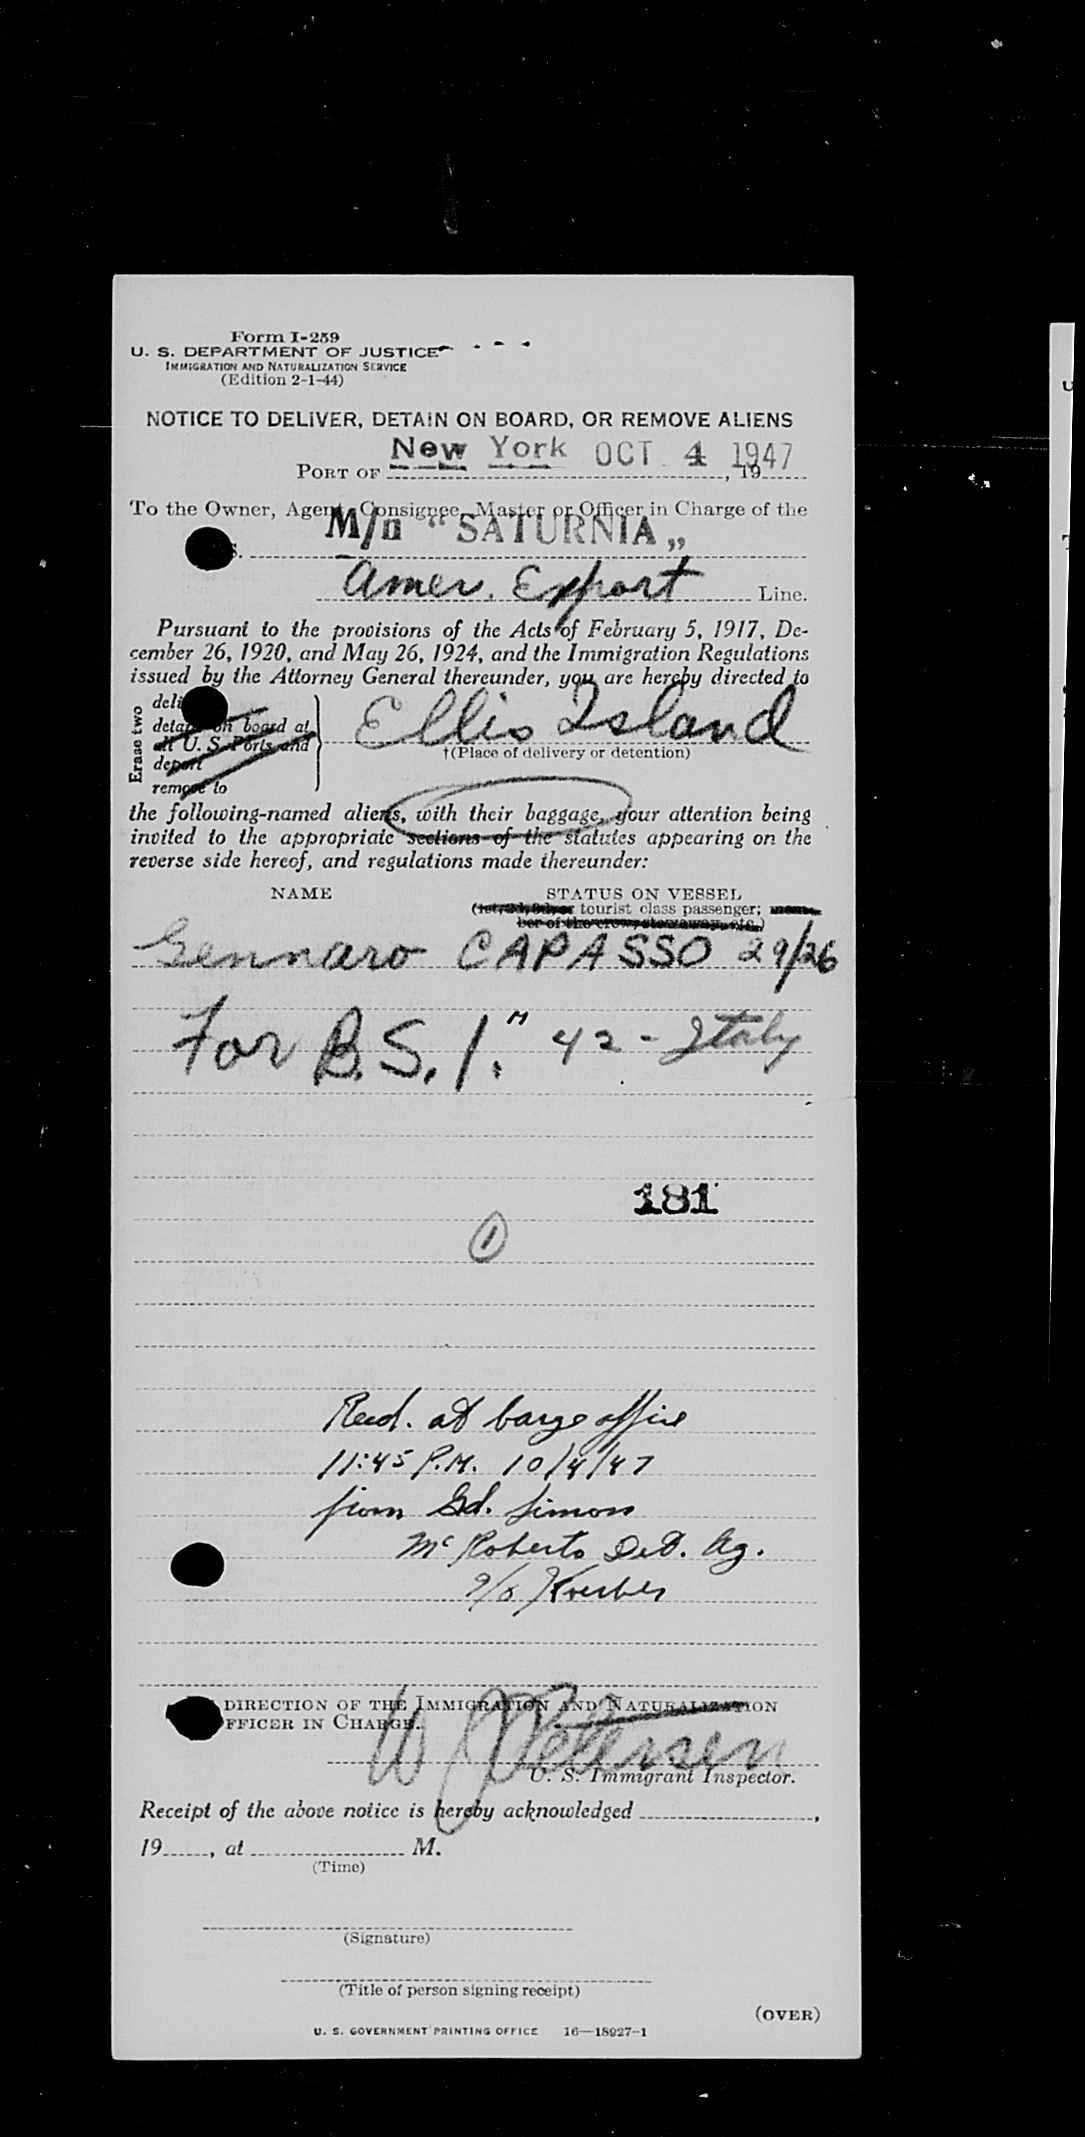 Form I-259
U. S. DEPARTMENT OF JUSTICE
IMMIGRATION AND NATURALIZATION SERVICE
(Edition 2-1-44)
NOTICE TO DELIVER, DETAIN ON BOARD, OR REMOVE ALIENS
New York OCT 4 1947
PORT OF , 19
To the Owner, Agent, Consignee, Master or Officer in Charge of the
M/n "SATURNIA"
S.
Amer. Export Line.
Pursuant to the provisions of the Acts of February 5, 1917, De-
cember 26, 1920, and May 26, 1924, and the Immigration Regulations
issued by the Attorney General thereunder, you are hereby directed to
Erase two
deli
detain on board at
all U. S. Ports and
deport
remove to
Ellis Island
†(Place of delivery or detention)
the following-named aliens, with their baggage, your attention being
invited to the appropriate sections of the statutes appearing on the
reverse side hereof, and regulations made thereunder:
NAME STATUS ON VESSEL
(1st, 2d, 3d, or tourist class passenger; mem-
ber of the crew, stowaway, etc.)
Gennaro CAPASSO 29/26
For B.S.I. " 42 - Italy
181
1
Recd. at barge office
11:45 P.M. 10/4/47
from Gd. Simon
McRoberts Det. Ag.
DIRECTION OF THE IMMIGRATION AND NATURALIZATION
FFICER IN CHARGE.
W Petersen
U. S. Immigrant Inspector.
Receipt of the above notice is hereby acknowledged ,
19 , at M.
(Time)
(Signature)
(Title of person signing receipt)
(OVER)
U. S. GOVERNMENT PRINTING OFFICE 16—18927-1